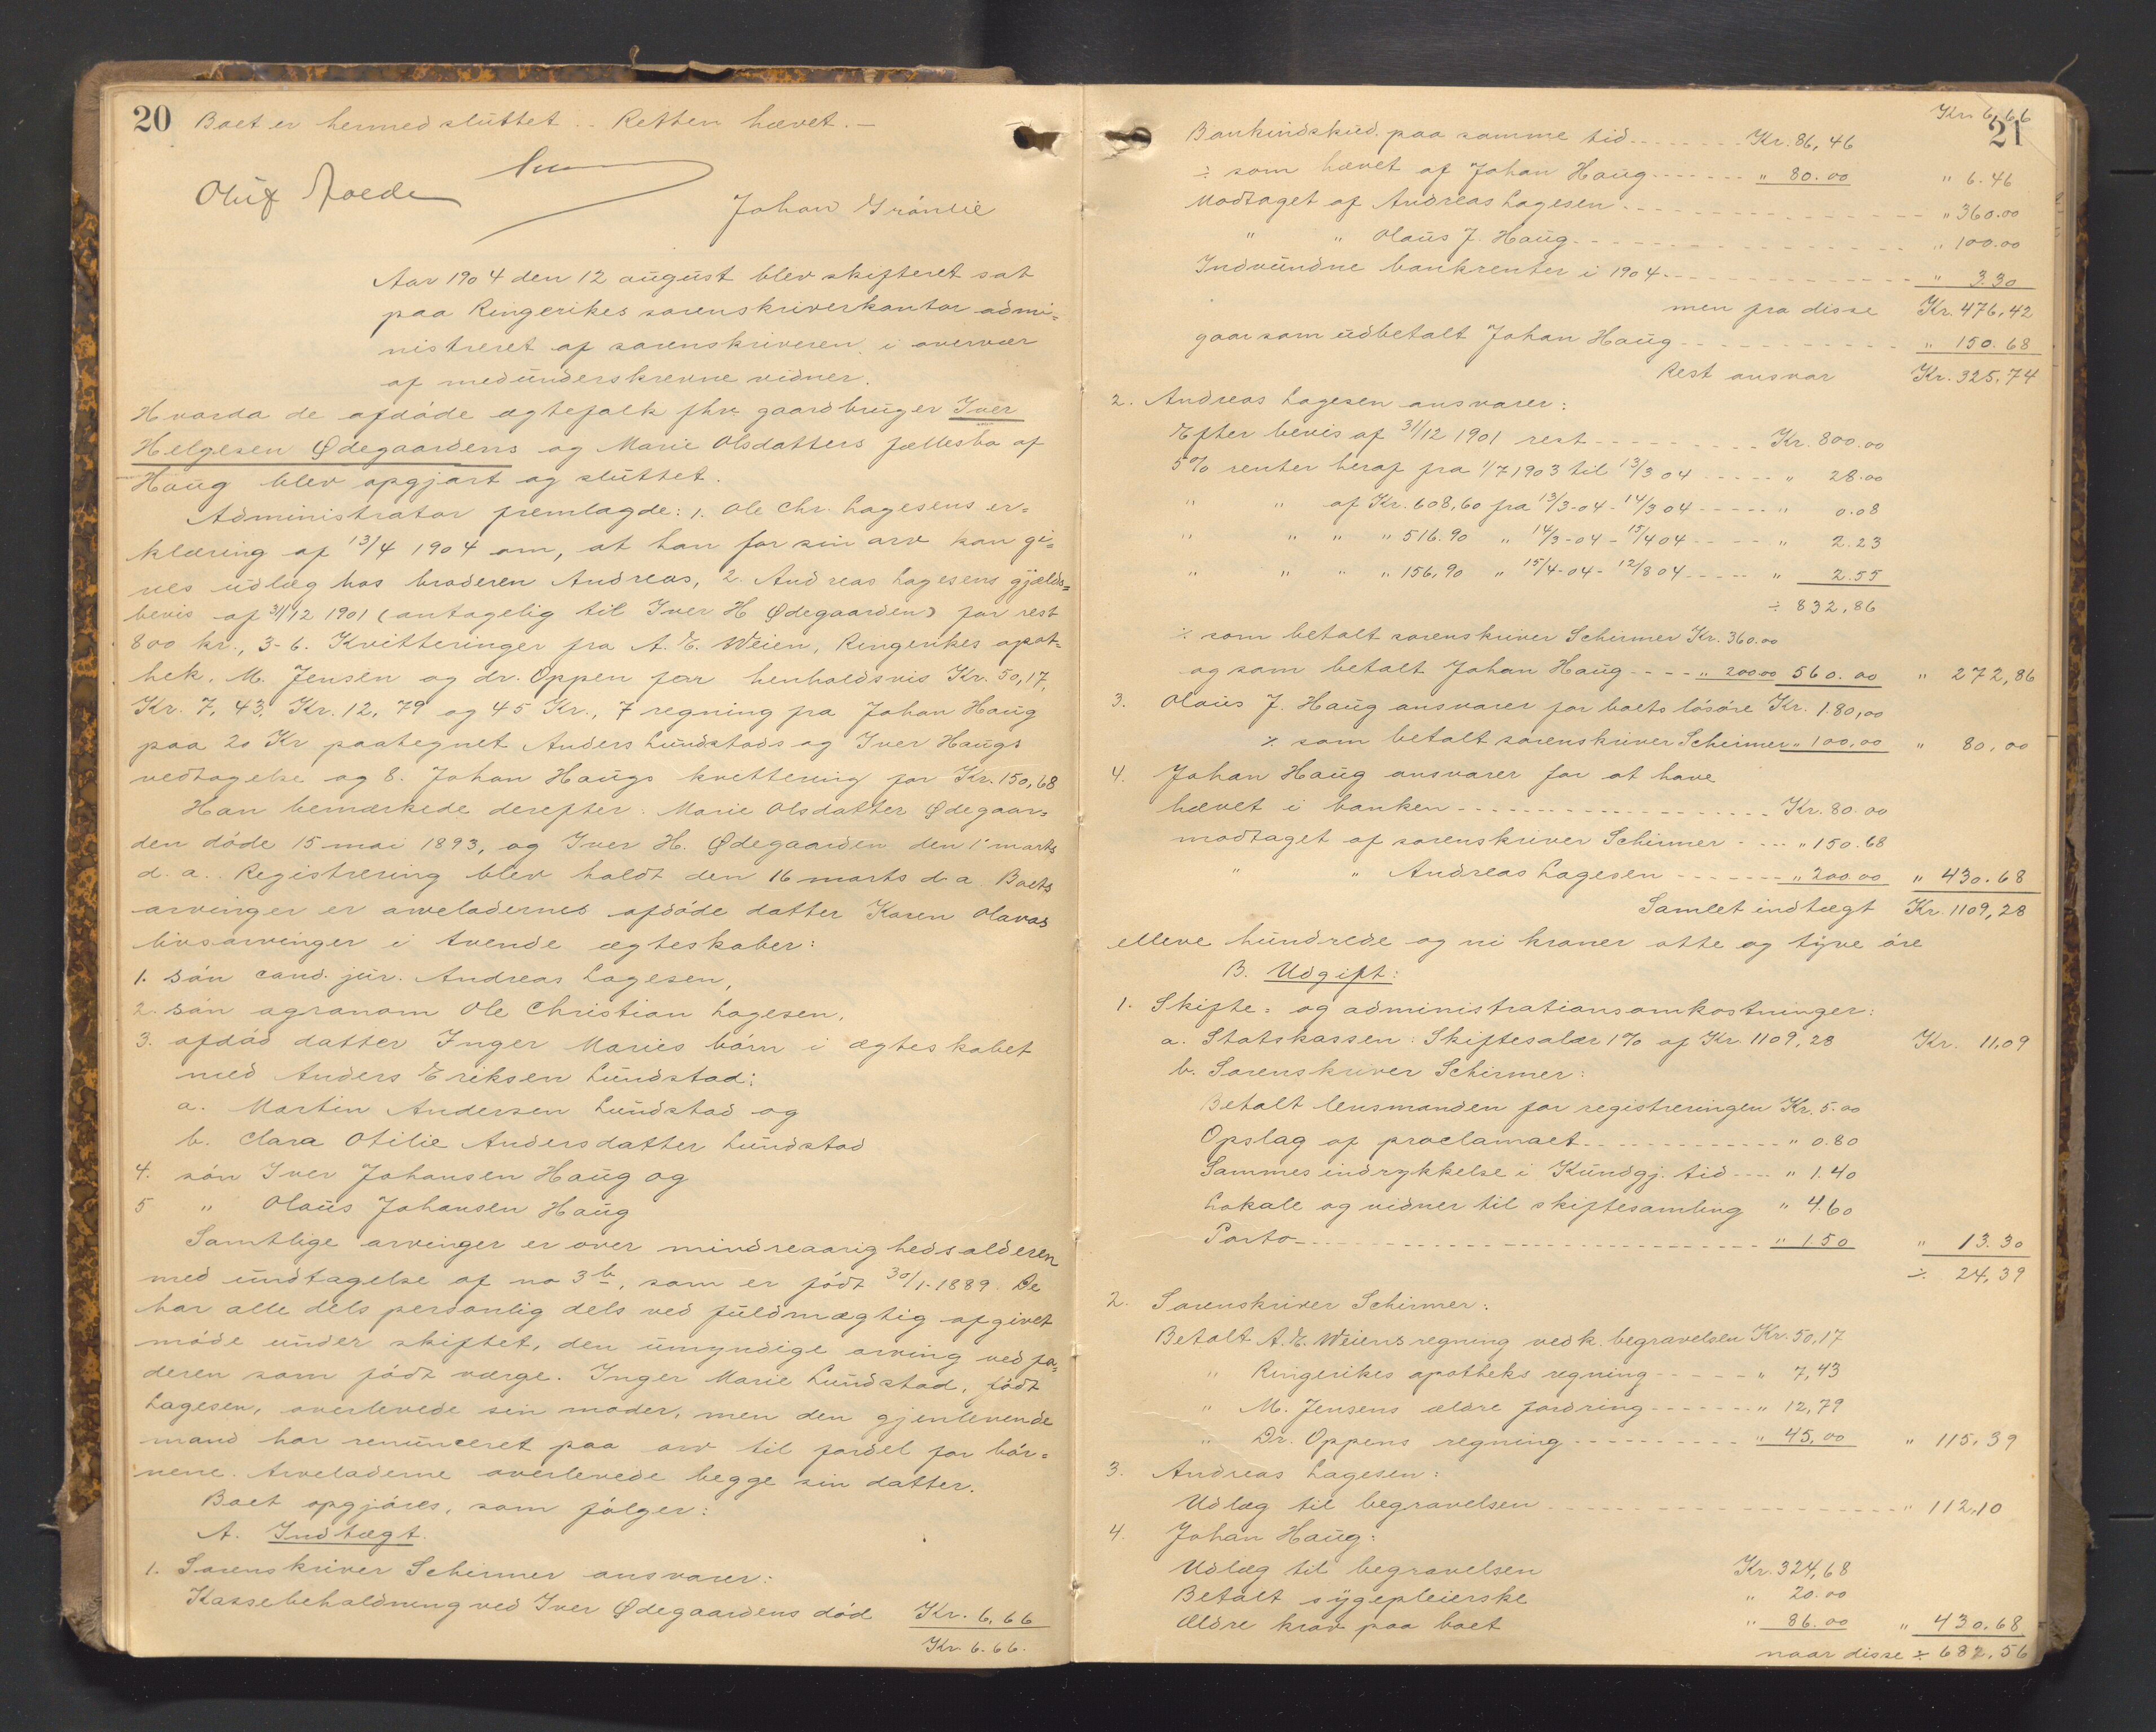 20 Boet er hermed sluttet. Retten hævet. —
Johan Grönlie
Aar 1904 den 12 august blev skifteret sat
paa Ringerikes sorenskriverkontor admi=
nistreret af sorenskriveren i overvær
af medunderskrevne vidner.
Hvorda de afdöde ægtefolk fhv. gaardbruger Iver
Helgesen Ødegaardens og Marie Olsdatters fællesbo af
Haug blev opgjort og sluttet.
Administrator fremlagde: 1. Ole Chr. Lagesens er=
klæring af 13/4 1904 om, at han for sin arv kan gi=
ves udlæg hos broderen Andreas, 2. Andreas Lagesens gjælds=
bevis af 31/12 1901 (antagelig til Iver H Ødegaarden) for rest
800 kr., 3-6. Kvitteringer fra A. E. Weien, Ringerikes apot=
hek, M. Jensen og dr. Oppen for henholdsvis Kr. 50,17,
Kr. 7,43, Kr. 12,79 og 45 Kr., 7 regning fra Johan Haug
paa 20 Kr paategnet Anders Lundstads og Iver Haugs
vedtagelse og 8. Johan Haugs kvittering for Kr. 150,68
Han bemærkede derefter: Marie Olsdatter Ødegaar=
den döde 15 mai 1893, og Iver H. Ødegaarden den 1' marts
d. a. Registrering blev holdt den 16 marts d. a. Boets
arvinger er arveladernes afdöde datter Karen Olavas
livsarvinger i tvende ægteskaber:
1. sön cand. jur. Andreas Lagesen,
2. sön agronom Ole Christian Lagesen,
3. afdöd datter Inger Maries börn i ægteskabet
med Anders Eriksen Lundstad:
a. Martin Andersen Lundstad og
b. Clara Otilie Andersdatter Lundstad
4. sön Iver Johansen Haug og
5 " Olaus Johansen Haug
Samtlige arvinger er over mindreaarighedsalderen
med undtagelse af no 3 b, som er födt 30/1-1889. De
har alle dels personlig dels ved fuldmægtig afgivet
möde under skiftet, den umyndige arving ved fa=
deren som födt værge. Inger Marie Lundstad, födt
Lagesen, overlevede sin moder, men den gjenlevende
mand har renunceret paa arv til fordel for bör=
nene. Arveladerne overlevede begge sin datter.
Boet opgjöres, som fölger:
A. Indtægt.
1. Sorenskriver Schirmer ansvarer:
Kassebeholdning ved Iver Ødegaardens död Kr. 6,66
Kr. 6.66.
Kr. 6,66
21
Bankindskud paa samme tid Kr. 86,46
÷ som hævet af Johan Haug " 80.00 " 6.46
Modtaget af Andreas Lagesen " 360.00
" " Olaus J. Haug " 100.00
Indvundne bankrenter i 1904 " 3.30
men fra disse Kr. 476,42
gaar som udbetalt Johan Haug " 150.68
Rest ansvar Kr. 325,74
2. Andreas Lagesen ansvarer:
Efter bevis af 31/12 1901 rest Kr. 800.00
5% renter heraf fra 1/7 1903 til 13/3 04 " 28.00
" " af Kr. 608,60 fra 13/3-04 - 14/3 04 " 0.08
" " " " 516.90 " 14/3-04 - 15/4 04 " 2.23
" " " " 156,90 " 15/4-04 - 12/8 04 " 2.55
÷ 832,86
÷ som betalt sorenskriver Schirmer Kr. 360.00
og som betalt Johan Haug " 200.00 560.00 " 272,86
3. Olaus J. Haug ansvarer for boets lösöre Kr. 180,00
÷ som betalt sorenskriver Schirmer " 100,00 " 80,00
4. Johan Haug ansvarer for at have
hævet i banken Kr. 80.00
modtaget af sorenskriver Schirmer " 150.68
" " Andreas Lagesen " 200.00 " 430.68
Samlet indtægt Kr. 1109,28
elleve hundrede og ni kroner otte og tyve öre
B. Udgift:
1. Skifte= og administrationsomkostninger:
a. Statskassen: Skiftesalær 1% af Kr. 1109,28 Kr. 11,09
b. Sorenskriver Schirmer:
Betalt lensmanden for registreringen Kr. 5.00
Opslag af proclamaet " 0.80
Sammes indrykkelse i Kundgj. tid " 1.40
Lokale og vidner til skiftesamling " 4.60
Porto " 1.50 " 13.30
÷ 24,39
2. Sorenskriver Schirmer:
Betalt A. E. Weiens regning vedk. begravelsen Kr. 50,17
" Ringerikes apotheks regning " 7,43
" M. Jensens ældre fordring " 12,79
" Dr. Oppens regning " 45,00 " 115,39
3. Andreas Lagesen:
Udlæg til begravelsen " 112,10
4. Johan Haug:
Udlæg til begravelsen Kr. 324,68
Betalt sygepleierske " 20.00
Ældre krav paa boet " 86.00 " 430.68
naar disse ÷ 682,56